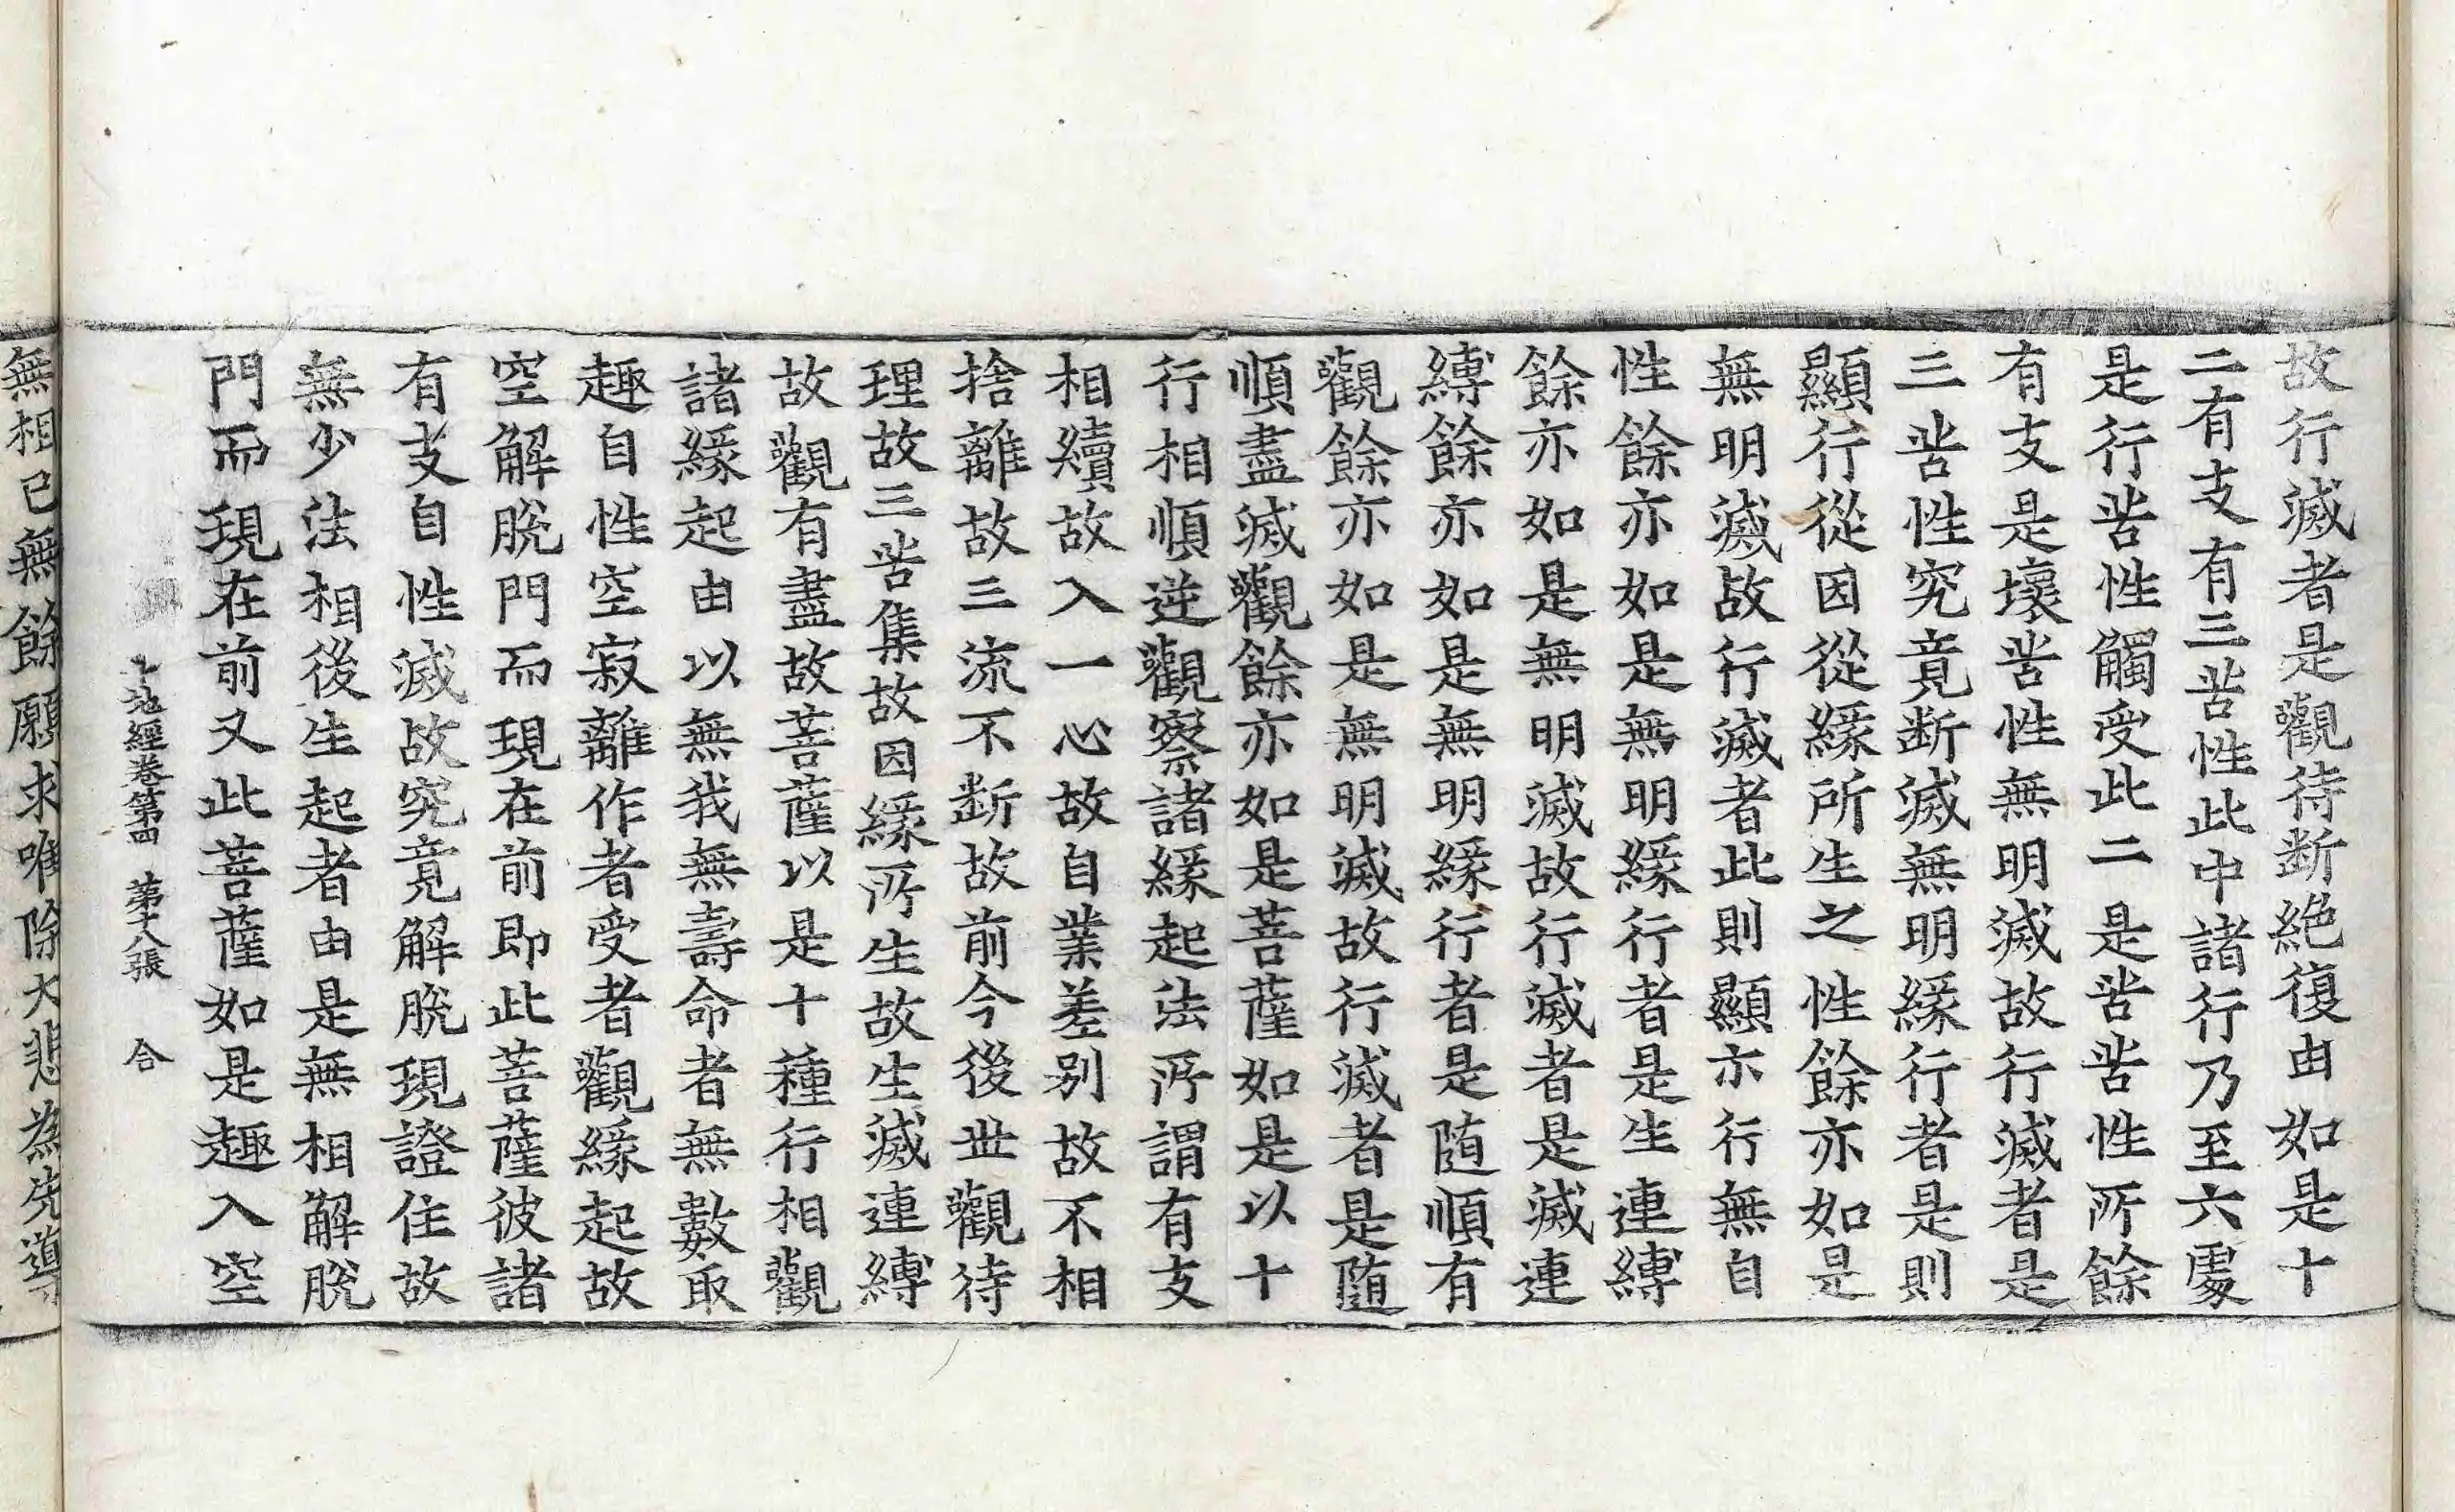 故行滅者是觀待断絶復由如是十
二有支有三苦性此中諸行乃至六處
是行苦性觸受此二是苦苦性所餘
有支是壞苦性無明滅故行滅者是
三苦性究竟断滅無明緣行者是則
顯行從因從緣所生之性餘亦如是
無明滅故行滅者此則顯示行無自
性餘亦如是無明緣行者是生連縛
餘亦如是無明滅故行滅者是滅連
縛餘亦如是無明緣行者是隨順有
觀餘亦如是無明滅故行滅者是隨
順盡滅觀餘亦如是菩薩如是以十
行相順逆觀察諸緣起法所謂有支
相續故入一心故自業差別故不相
捨離故三流不断故前今後世觀待
理故三苦集故因緣所生故生滅連縛
故觀有盡故菩薩以是十種行相觀
諸緣起由以無我無壽命者無數取
趣自性空寂離作者受者觀緣起故
空解脫門而現在前即此菩薩彼諸
有支自性滅故究竟解脫現證住故
無少法相後生起者由是無相解脫
門而現在前又此菩薩如是趣入空
十地經卷第四 第十八張 合
無相已無餘願求唯除大悲為先導